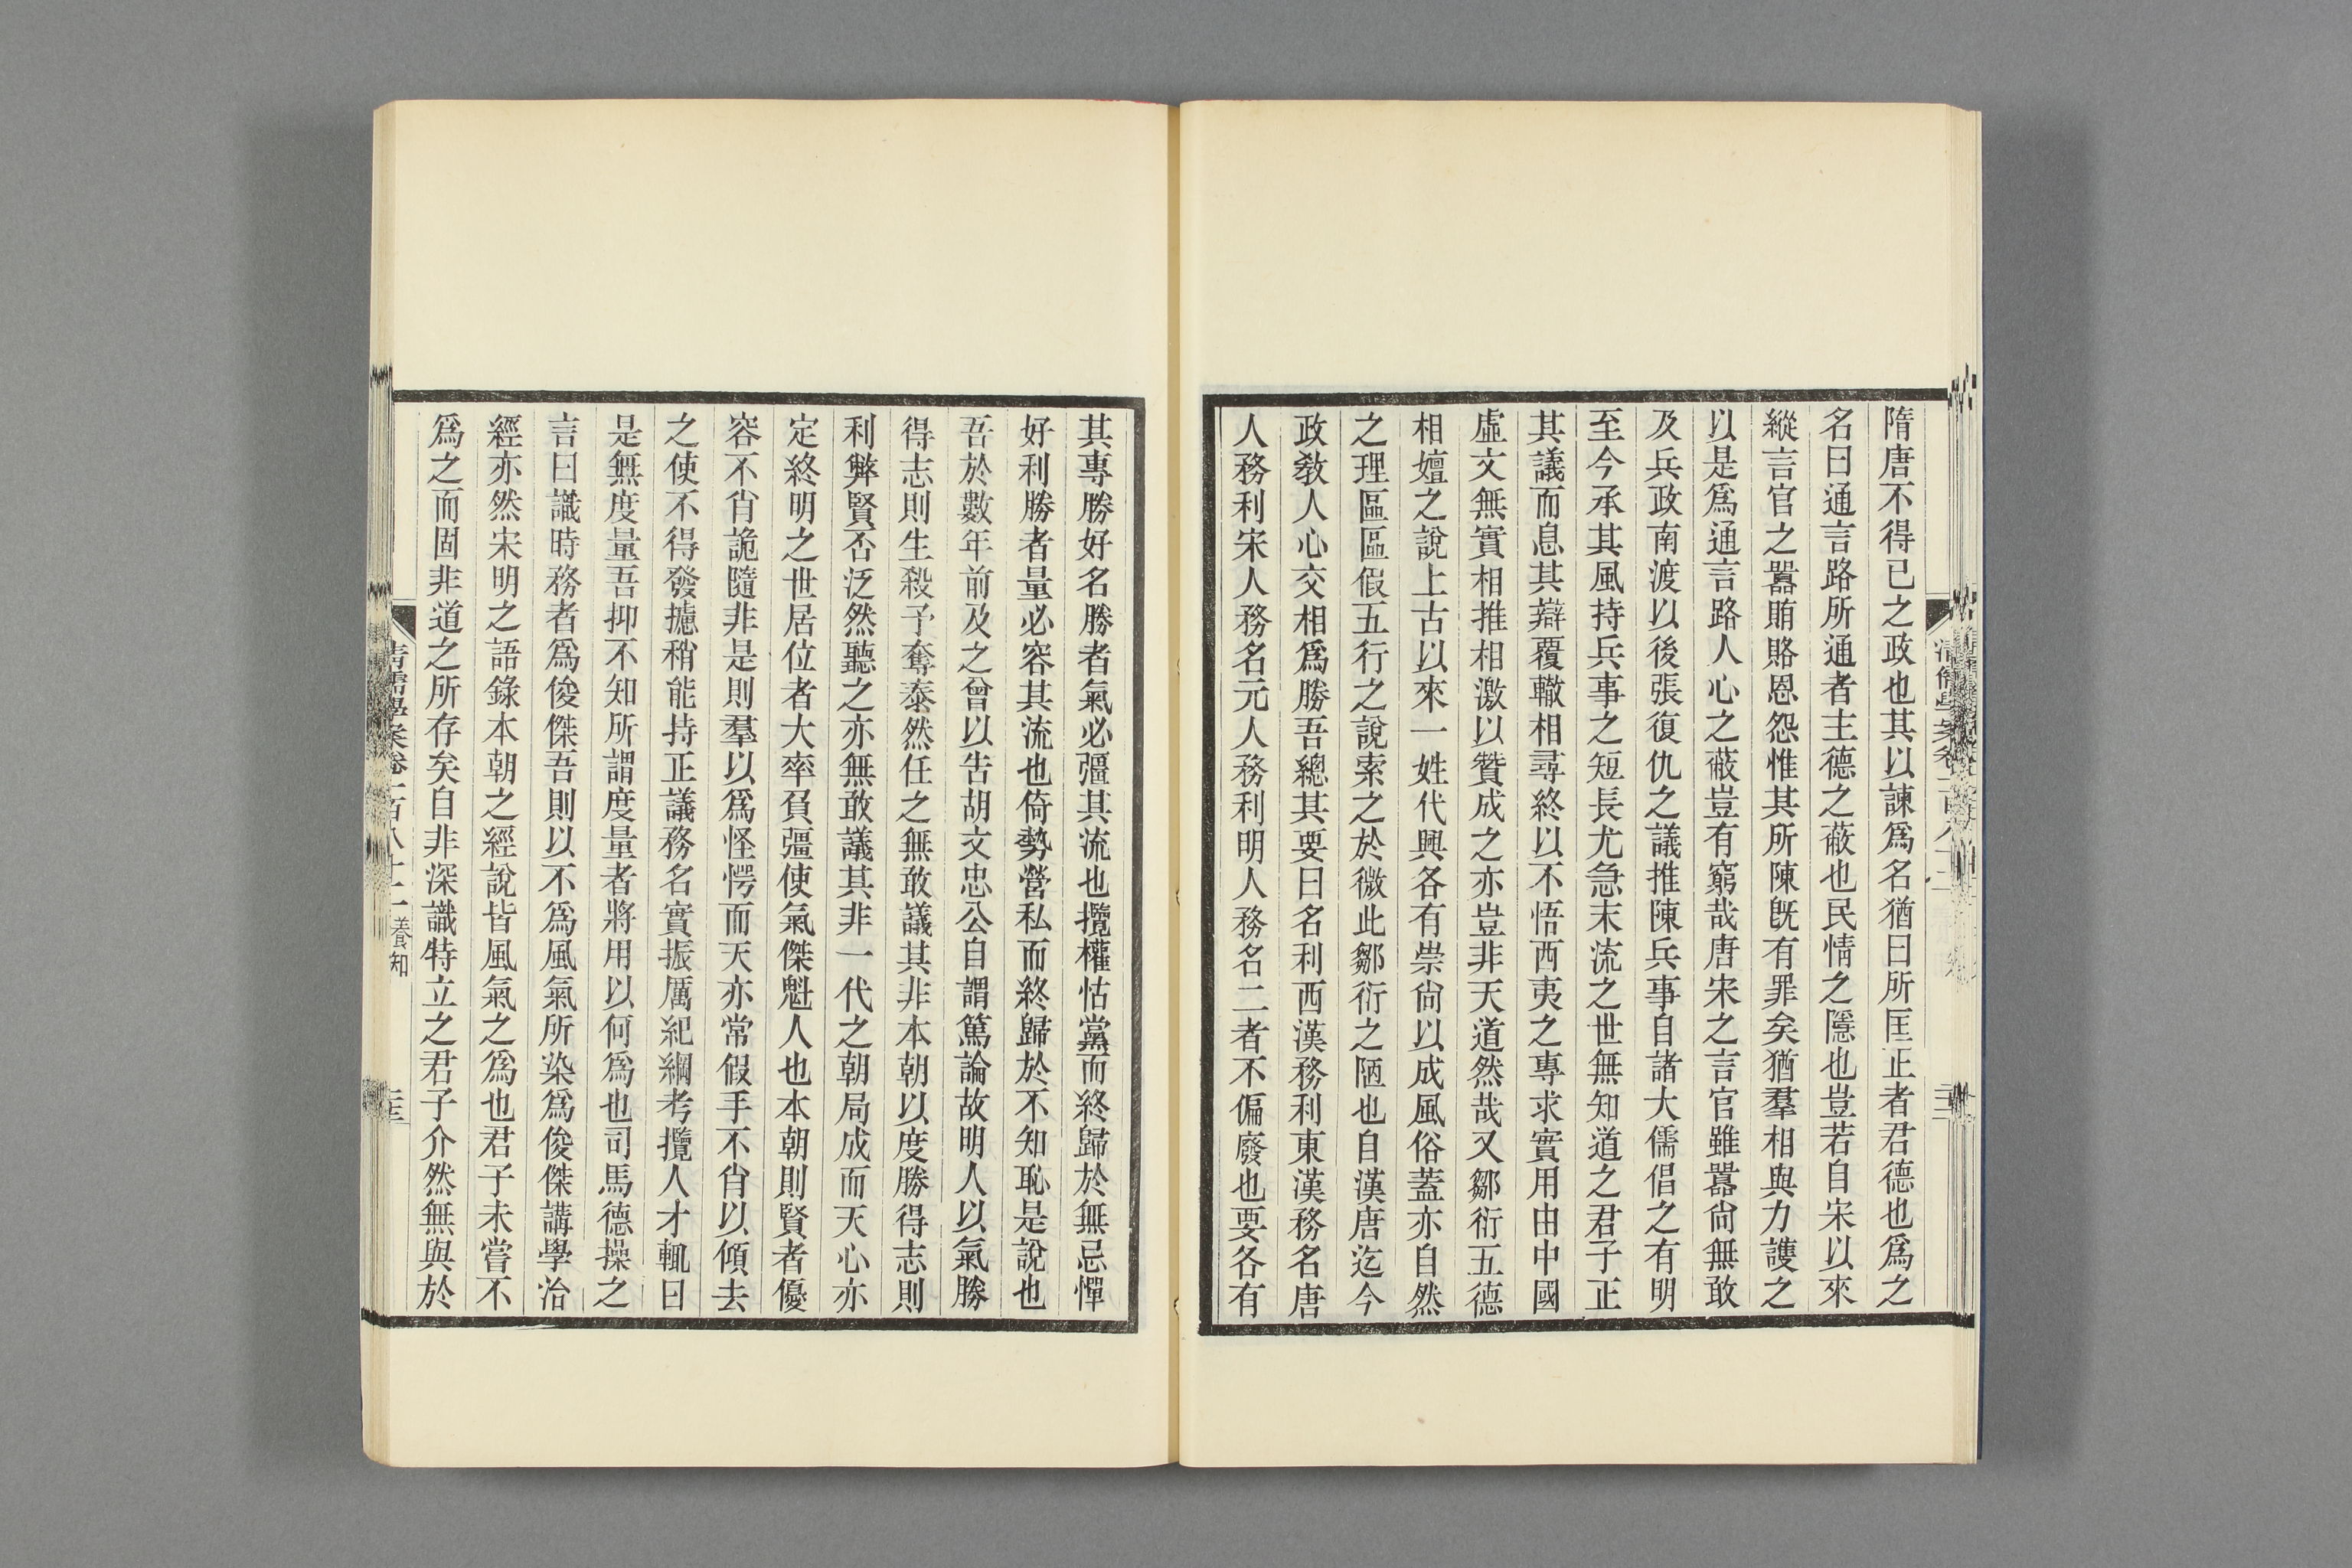 隋唐不得已之政也其以諫爲名猶曰所匡正者君德也爲之
名曰通言路所通者主德之蔽也民情之隱也豈若自宋以來
縱言官之囂賄賂恩怨惟其所陳旣有罪矣猶羣相與力護之
以是爲通言路人心之蔽豈有窮哉唐宋之言官雖囂尙無敢
及兵政南渡以後張復仇之議推陳兵事自諸大儒倡之有明
至今承其風持兵事之短長尤急末流之世無知道之君子正
其議而息其辯覆轍相尋終以不悟西夷之專求實用由中國
虛文無實相推相激以贊成之亦豈非天道然哉又鄒衍五德
相嬗之說上古以來一姓代興各有崇尙以成風俗蓋亦自然
之理區區假五行之說索之於微此鄒衍之陋也自漢唐迄今
政敎人心交相爲勝吾總其要曰名利西漢務利東漢務名唐
人務利宋人務名元人務利明人務名二者不偏廢也要各有
其專勝好名勝者氣必彊其流也攬權怙黨而終歸於無忌憚
好利勝者量必容其流也倚勢營私而終歸於不知恥是說也
吾於數年前及之曾以吿胡文忠公自謂篤論故明人以氣勝
得志則生殺予奪泰然任之無敢議其非本朝以度勝得志則
利弊賢否泛然聽之亦無敢議其非一代之朝局成而天心亦
定終明之世居位者大率負彊使氣傑魁人也本朝則賢者優
容不肖詭隨非是則羣以爲怪愕而天亦常假手不肖以傾去
之使不得發攄稍能持正議務名實振厲紀綱考攬人才輒曰
是無度量吾抑不知所謂度量者將用以何爲也司馬德操之
言曰識時務者爲俊傑吾則以不爲風氣所染爲俊傑講學治
經亦然宋明之語錄本朝之經說皆風氣之爲也君子未嘗不
爲之而固非道之所存矣自非深識特立之君子介然無與於
清儒學案卷一百八十二 養知